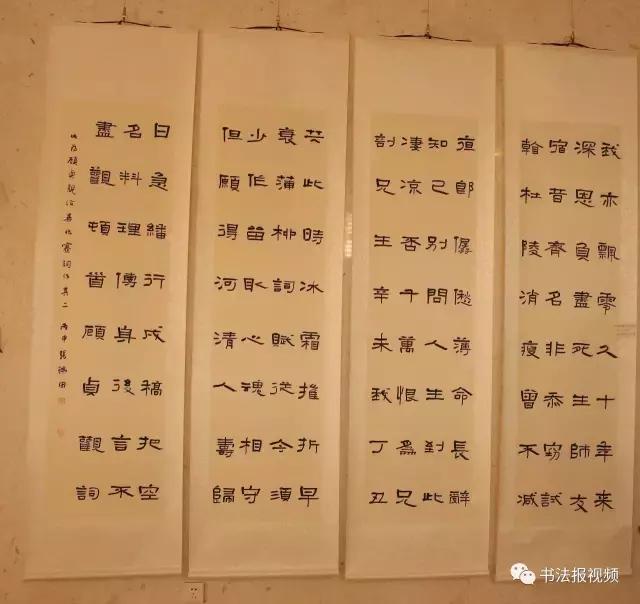 我亦飄零久十年来
深恩負盡死生師友
宿昔齊名非忝窃試
看杜陵消瘦曾不减
夜郎僝僽薄命長辭
知己別問人生到此
凄凉否千萬恨為兄
剖兄生辛未我丁丑
共此時冰霜摧折早
衰蒲柳詞賦從今須
少作留取心魂相守
但願得河清人壽歸
日急繙行戍稿把空
名料理傳身後言不
盡觀頓首顧貞觀詞
其二 丙申
书法报视频